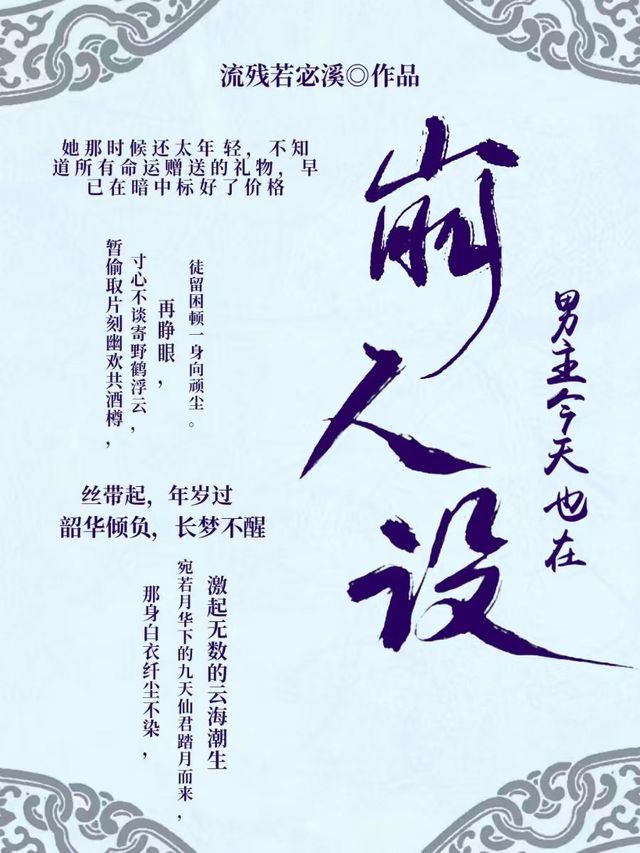 流残若宓溪◎作品
男主今天也在
崩人设
她那时候还太年轻，不知
道所有命运赠送的礼物，早
已在暗中标好了价格
暂偷取片刻幽欢共酒樽，
寸心不谈寄野鹤浮云，
再睁眼，
徒留困顿一身向顽尘。
丝带起，年岁过
韶华倾负，长梦不醒
那身白衣纤尘不染，
宛若月华下的九天仙君踏月而来，
激起无数的云海潮生